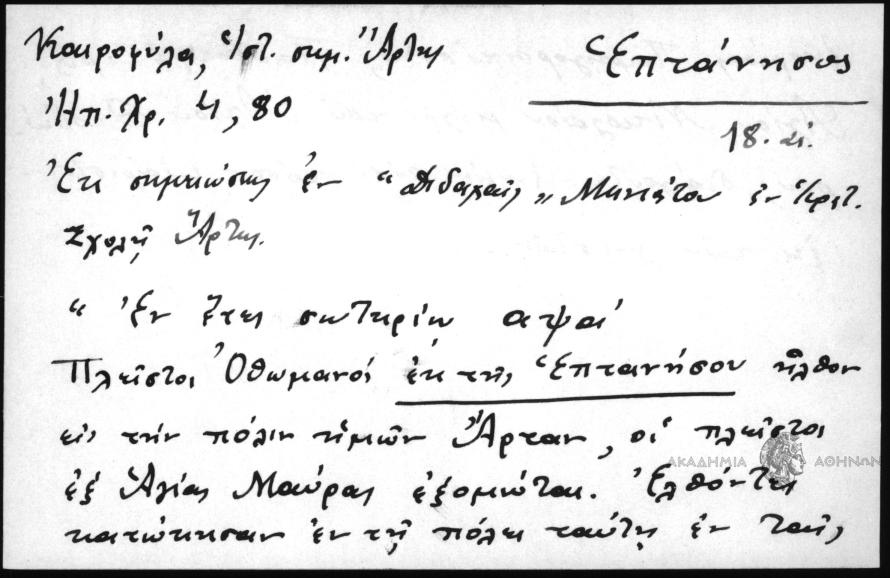 Καιροφύλα, Ἱστ. σημ. Ἄρτης
Ἑπτάνησος
Ἠπ. Χρ. 4, 80
18. αἰ.
Ἐκ σημειώσεως ἐν "Διδαχαῖς" Μηνιάτου ἐν Ἱερατ.
Σχολῇ Ἄρτης.
" Ἐν ἔτει σωτηρίῳ αψαʹ
Πλεῖστοι Ὀθωμανοί ἐκ τῆς Ἑπτανήσου ἦλθον
εἰς τήν πόλιν ἡμῶν Ἄρταν, οἱ πλεῖστοι
ἐξ Ἁγίας Μαύρας ἐξομιῶται. Ἐλθόντες
κατώκησαν ἐν τῇ πόλει ταύτῃ ἐν ταῖς
ΑΚΑΔΗΜΙΑ ΑΘΗΝΩΝ